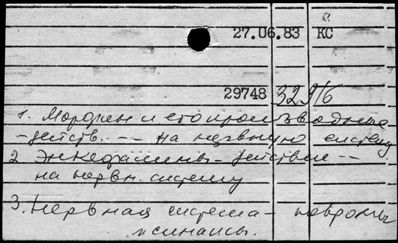 27.06.83 КС
29748 329/6
1. Морфин и его производные
-действ. -- на нервную систему
2 Энкефалины - действие --
на нервн. систему
3. Нервная система - нейроны
и синапсы.